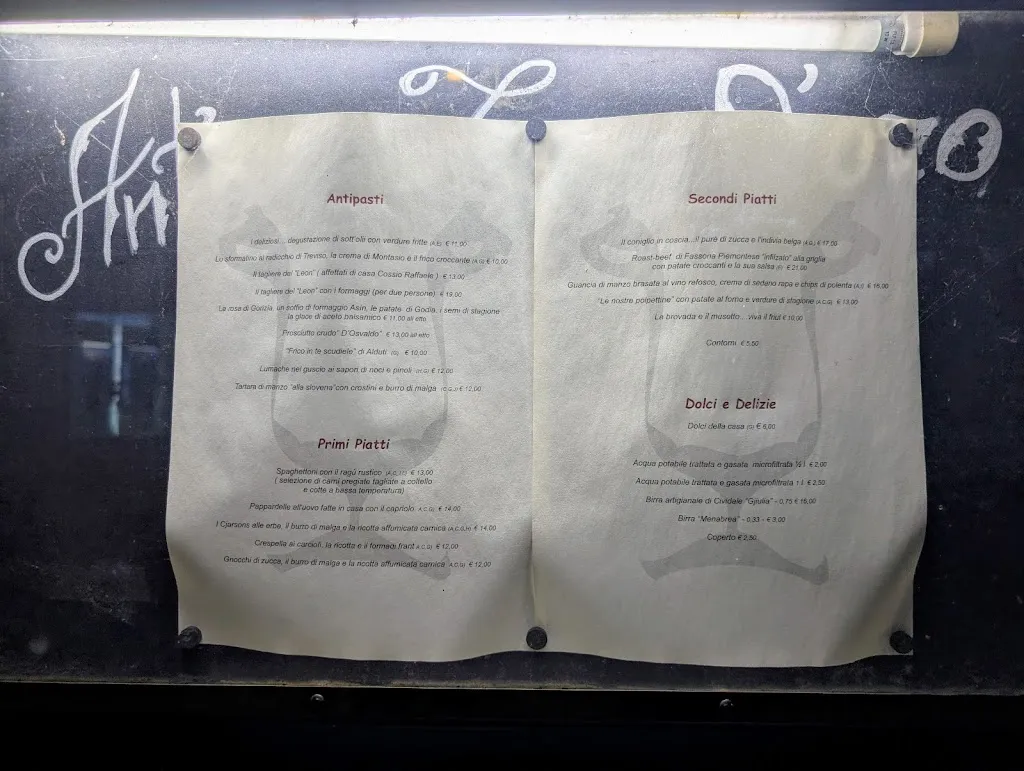 Antipasti
I deliziosi... degustazione di sott'olii con verdure fritte (A.E) € 11,00
Lo sformatino al radicchio di Treviso, la crema di Montasio e il frico croccante (A.G) € 10,00
Il tagliere del "Leon" ( affettati di casa Cossio Raffaele ) € 13,00
Il tagliere del "Leon" con i formaggi (per due persone) € 19,00
La rosa di Gorizia, un soffio di formaggio Asìn, le patate di Godia, i semi di stagione
la glace di aceto balsamico € 11,00 all'etto
Prosciutto crudo" D'Osvaldo" € 13,00 all'etto
"Frico in te scudiele" di Alduti (G) € 10,00
Lumache nel guscio ai sapori di noci e pinoli € 12,00
Tartara di manzo "alla slovena"con crostini e burro di malga € 12,00
Primi Piatti
Spaghettoni con il ragù rustico € 13,00
( selezione di carni pregiate tagliate a coltello
e cotte a bassa temperatura)
Pappardelle all'uovo fatte in casa con il capriolo A.C.G) € 14,00
I Cjarsons alle erbe, il burro di malga e la ricotta affumicata carnica € 14,00
Crespella ai carciofi, la ricotta e il formadi frant A.C.G) € 12,00
Gnocchi di zucca, il burro di malga e la ricotta affumicata carnica (A.C.G) € 12,00
Secondi Piatti
Il coniglio in coscia...il purè di zucca e l'indivia belga (A.G.) € 17,50
Roast-beef di Fassona Piemontese "infilzato" alla griglia
con patate croccanti e la sua salsa € 21,00
Guancia di manzo brasata al vino refosco, crema di sedano rapa e chips di polenta (A.I) € 18,00
"Le nostre polpettine" con patate al forno e verdure di stagione (A.C.G) € 13,00
La brovada e il musetto... viva il friul € 10,00
Contorni € 5,50
Dolci e Delizie
Dolci della casa (G) € 6,00
Acqua potabile trattata e gasata microfiltrata ½ l € 2,00
Acqua potabile trattata e gasata microfiltrata 1 l € 2,50
Birra artigianale di Cividale "Gjulia" - 0,75 € 16,00
Birra "Menabrea" - 0,33 - € 3,00
Coperto € 2,50